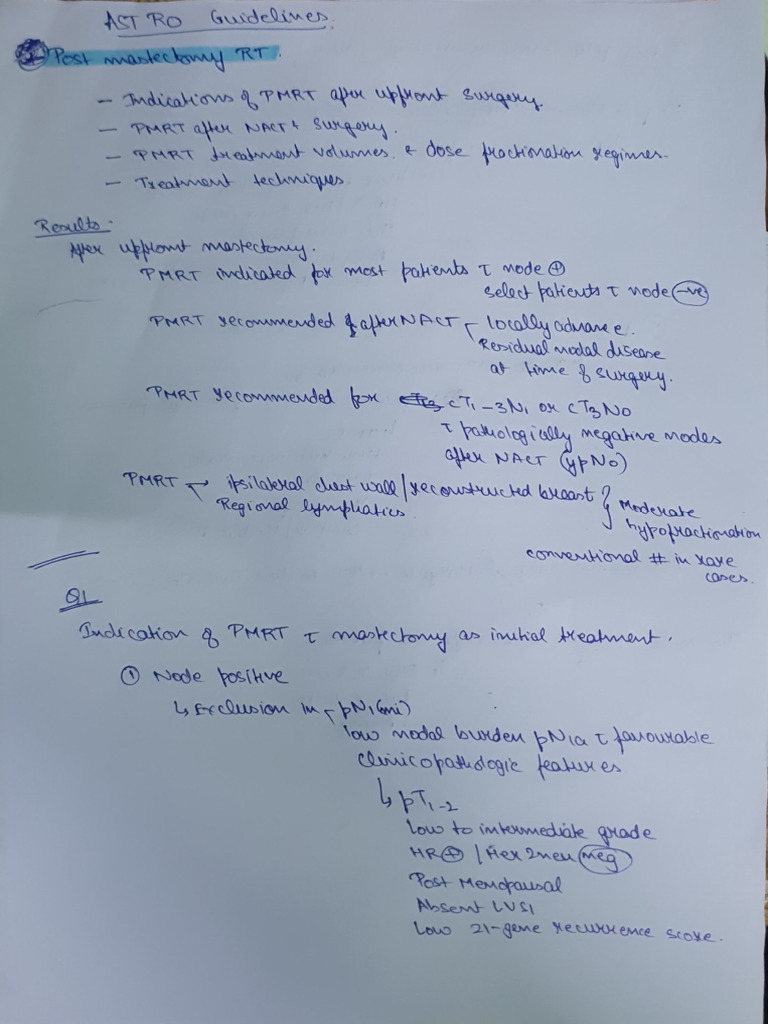 ASTRO Guidelines.
Post mastectomy RT.
- Indications of PMRT after upfront surgery.
- PMRT after NACT & surgery.
- PMRT treatment volumes & dose fractionation regimes.
- Treatment techniques
Results:-
After upfront mastectomy.
PMRT indicated for most patients τ node ⊕
select patients τ node -ve
PMRT recommended after NACT - locally advance.
Residual nodal disease
at time of surgery.
PMRT recommended for cT1-3N1 or cT3N0
τ pathologically negative nodes
after NACT (ypN0)
PMRT → ipsilateral chest wall/reconstructed breast
Regional lymphatics
} Moderate
hypofractionation
conventional # in rare
cases.
Q1
Indication of PMRT τ mastectomy as initial treatment.
① Node positive
↳ Exclusion in - pN1(mi)
low nodal burden pN1a τ favourable
clinicopathologic features
↳ pT1-2
Low to intermediate grade
HR ⊕ / Her2neu neg
Post Menopausal
Absent LVSI
Low 21-gene recurrence score.